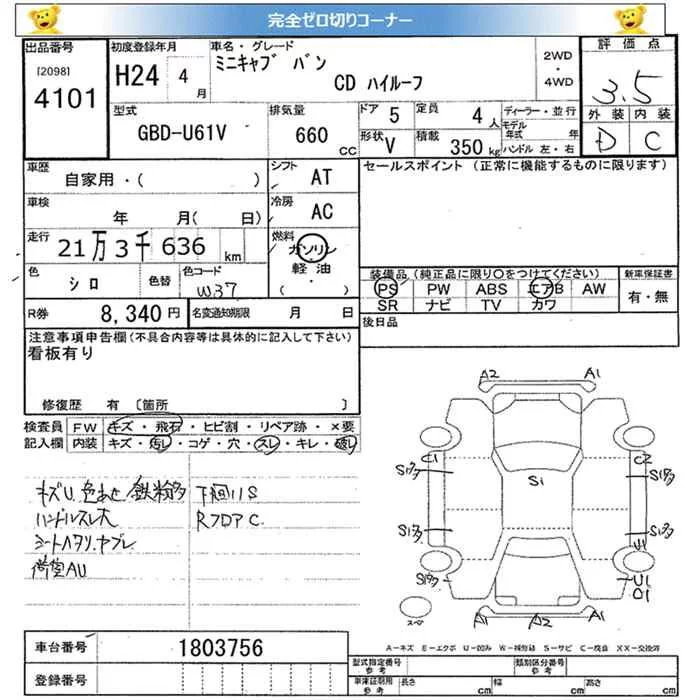 完全ゼロ切りコーナー
出品番号
[2098]
4101
初度登録年月
H24 4
月
車名・グレード
ミニキャブ バン
CD ハイルーフ
2WD
・
4WD
評価点
3.5
外装 内装
D C
型式
GBD-U61V
排気量
660
CC
ドア 5
形状 V
定員 4 人
積載 350 kg
ディーラー・並行
モデル
年式 年
ハンドル 左・右
車歴
自家用・( )
シフト AT
車検
年 月( 日)
冷房 AC
走行
21万3千636 km
燃料
ガソリン
軽油
( ・ )
色
シロ
色替
色コード
W37
R券 8,340 円
名変通知期限 月 日
セールスポイント (正常に機能するものに限ります)
装備品(純正品に限り○をつけてください)
PS PW ABS エアB AW
SR ナビ TV カワ
新車保証書
有・無
後日品
注意事項申告欄(不具合内容等は具体的に記入して下さい)
看板有り
修復歴 有 〔箇所 〕
検査員 FW キズ・飛石・ヒビ割・リペア跡・×要
記入欄 内装 キズ・汚レ・コゲ・穴・スレ・キレ・破レ
キズU.色あせ.鉄粉多
ハンドルスレ大
シートハタリ.ヤブレ
下廻りS
RフロアC.
A2 A1
C1 C2
S1多 S1多
S1
S1多 S1多
U1
S1多 U1
O1
スペ
A1 A2 A1
A－キズ E－エクボ U－凹み W－補修跡 S－サビ C－腐食 XX－交換済
車台番号 1803756
登録番号
型式指定番号
参考
類別区分番号
参考
車庫証明用
参考
長さ cm 幅 cm 高さ cm